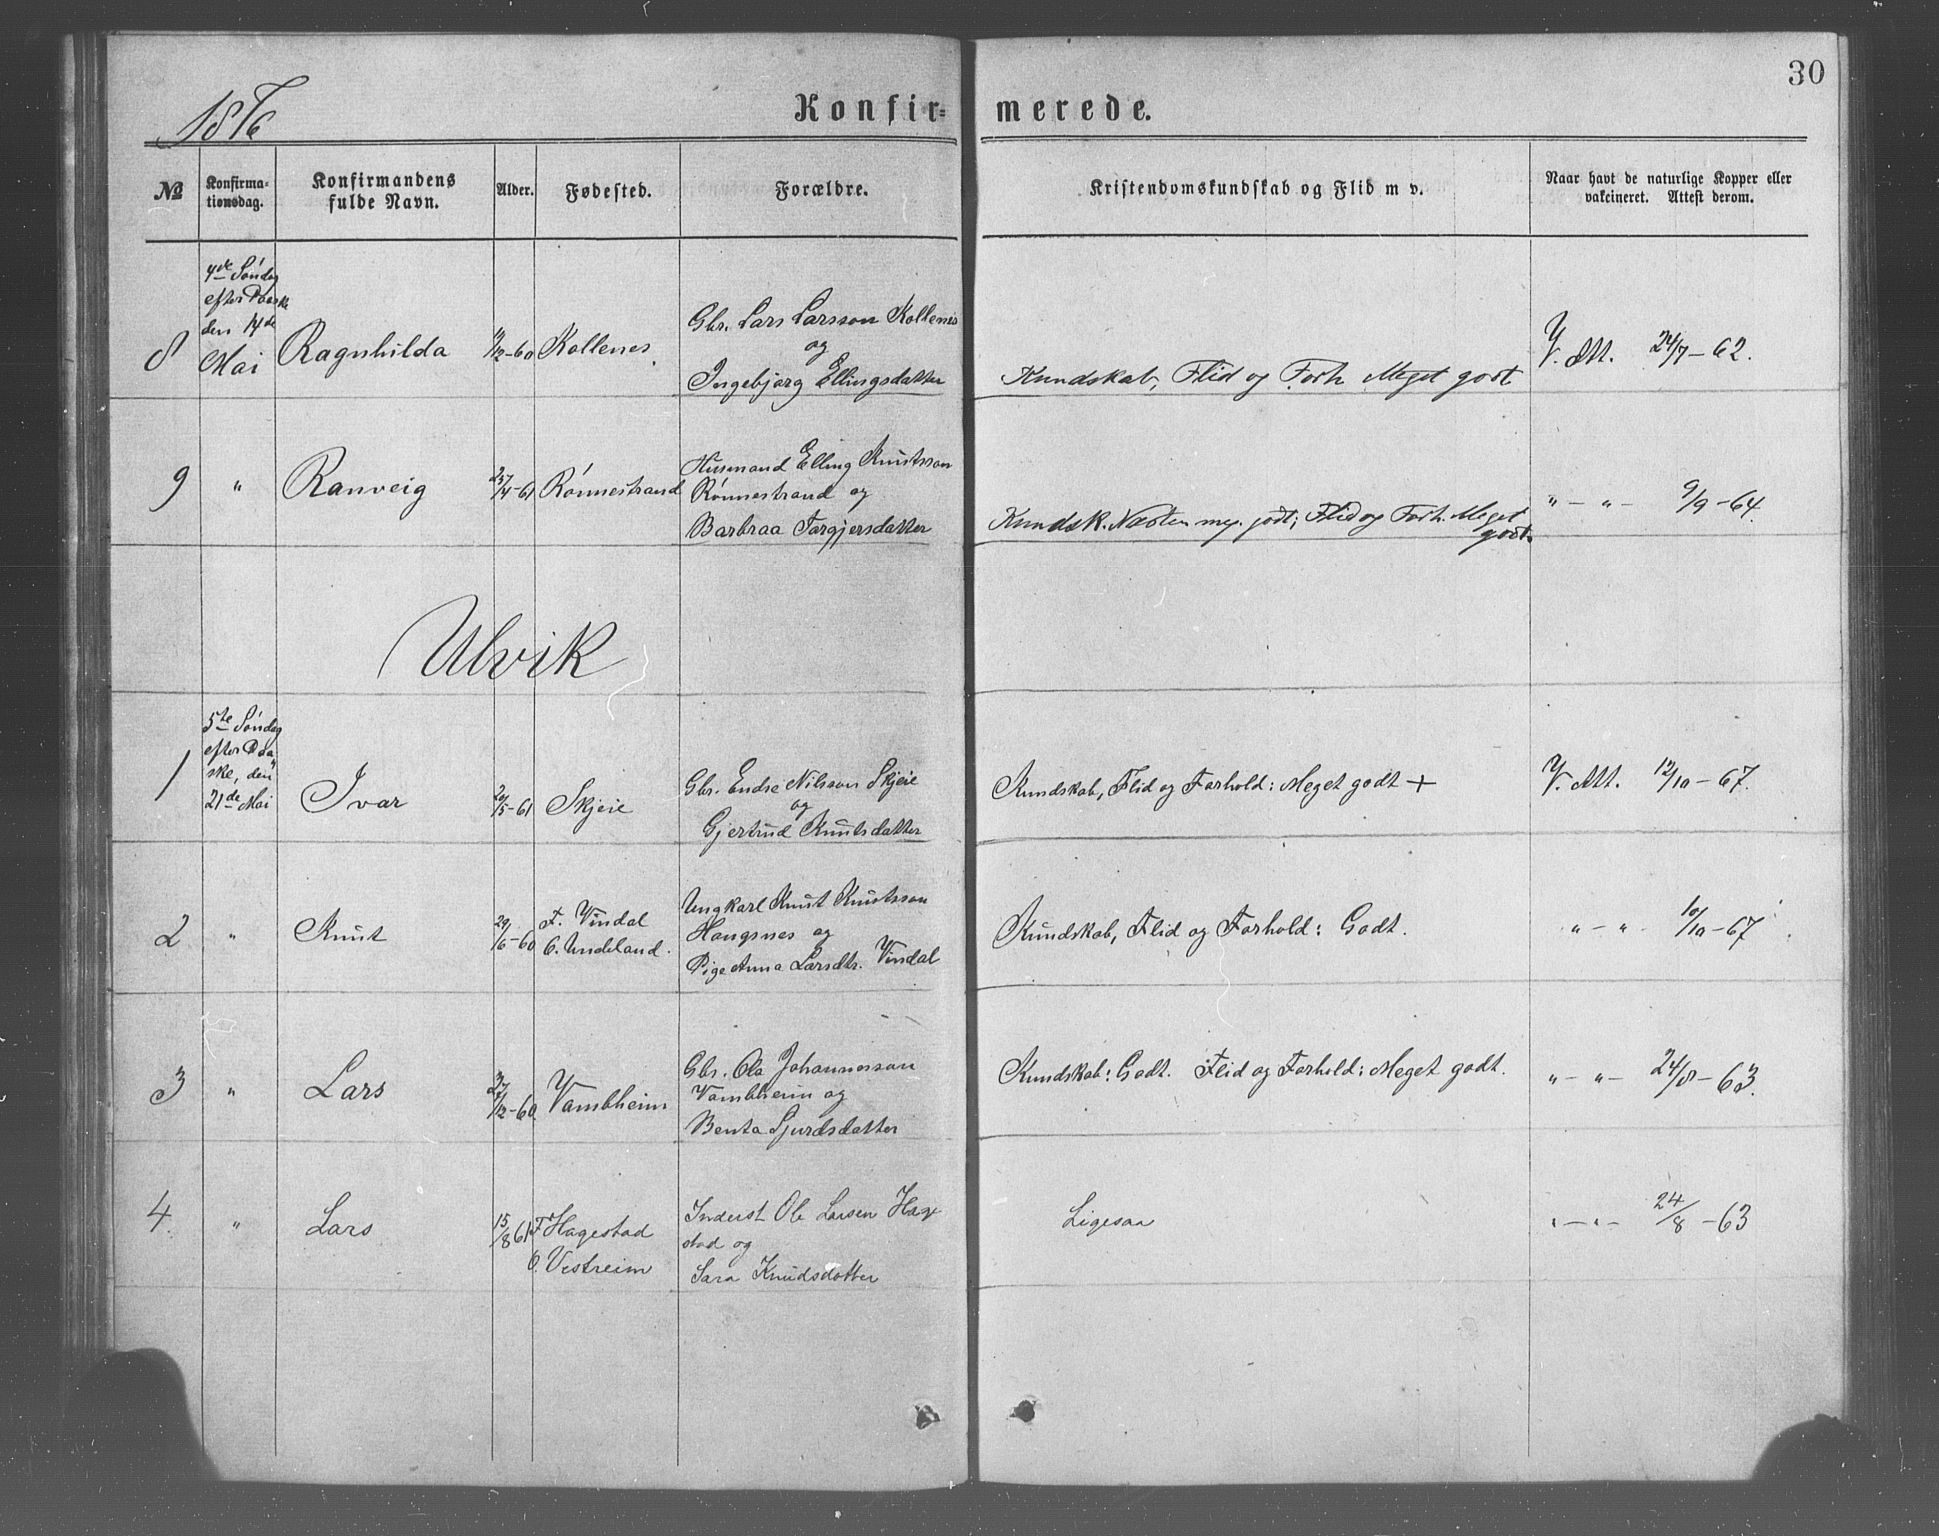 30
1876
Konfir=
merede.
№
Konfirma-
tionsdag.
Konfirmandens
fulde Navn.
Alder.
Fødested.
Forældre.
Kristendomskundskab og Flid m v.
Naar havt de naturlige Kopper eller
vakcineret. Attest derom.
8
4de Søndag
efter Paaske
den 14de
Mai
Ragnhilda
/12-60
Kollenes
Gbr. Lars Larsson Kollenes
og
Ingebjørg Ellingsdatter
Kundskab, Flid og Forh. Meget godt
V. Att. 24/7-62.
9
"
Ranveig
25/4-61
Rønnestrand
Husmand Elling Knutsson
Rønnestrand og
Barbraa Torgjersdatter
Kundsk. Næsten meg. godt; Flid og Forh. Meget
godt.
" - " - 9/9-64.
Ulvik
1
5te Søndag
efter Paa
ske, den
21de Mai
Ivar
20/5-61
Skjeie
Gbr. Endre Nilsson Skjeie
og
Gjertrud Knutsdatter
Kundskab, Flid og Forhold: Meget godt +
V. Att. 12/10-67.
2
"
Knut
29/6-60
F. Vindal
O. Undeland.
Ungkarl Knut Knutsson
Haugsnes og
Pige Anna Larsdtr. Vindal
Kundskab, Flid og Forhold: Godt.
" - " 10/10-67
3
"
Lars
27/12-60
Vambheim
Gbr. Ola Johannesson
Vambheim og
Benta Sjurdsdatter
Kundskab: Godt. Flid og Forhold: Meget godt.
" - " - 24/8-63.
4.
"
Lars
15/8 61
F Hagestad
O. Vestreim
Inderst Ole Larsen Hage
stad og
Sara Knudsdatter
Ligesaa
" - " - 24/8-63